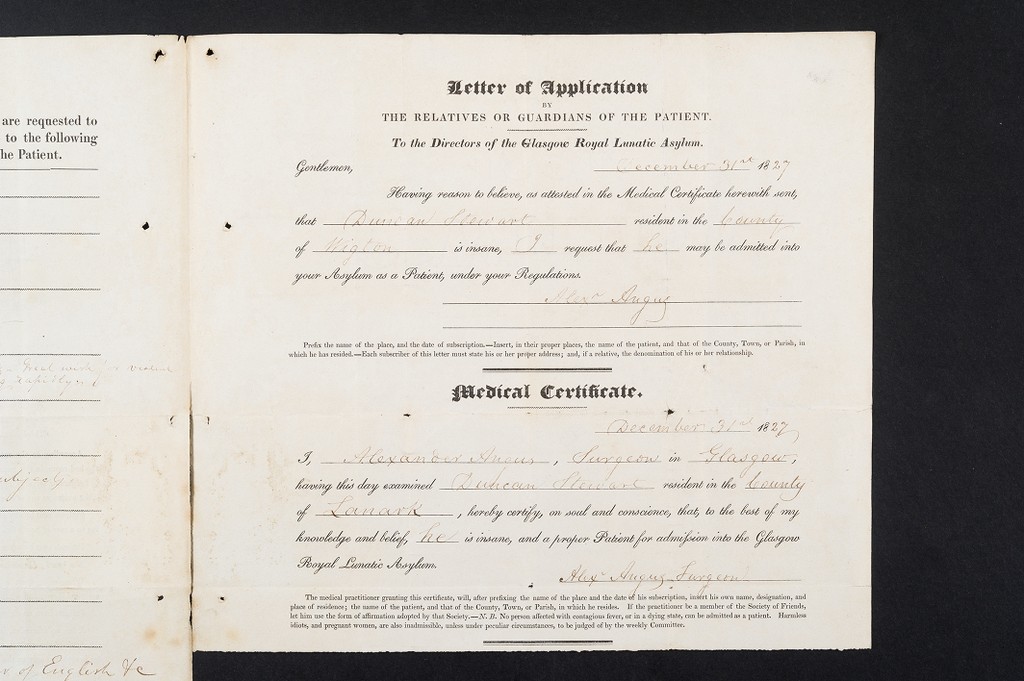 are requested to
to the following
he Patient.
of English &c
Letter of Application
BY
THE RELATIVES OR GUARDIANS OF THE PATIENT.
To the Directors of the Glasgow Royal Lunatic Asylum.
Gentlemen, December 31st 1827
Having reason to believe, as attested in the Medical Certificate herewith sent,
that Duncan Stewart resident in the County
of Wigton is insane, I request that he may be admitted into
your Asylum as a Patient, under your Regulations.
Alexr Angus
Prefix the name of the place, and the date of subscription.—Insert, in their proper places, the name of the patient, and that of the County, Town, or Parish, in
which he has resided.—Each subscriber of this letter must state his or her proper address; and, if a relative, the denomination of his or her relationship.
Medical Certificate.
December 31st 1827
I, Alexander Angus, Surgeon in Glasgow,
having this day examined Duncan Stewart resident in the County
of Lanark, hereby certify, on soul and conscience, that, to the best of my
knowledge and belief, he is insane, and a proper Patient for admission into the Glasgow
Royal Lunatic Asylum.
Alexr Angus Surgeon
The medical practitioner granting this certificate, will, after prefixing the name of the place and the date of his subscription, insert his own name, designation, and
place of residence; the name of the patient, and that of the County, Town, or Parish, in which he resides. If the practitioner be a member of the Society of Friends,
let him use the form of affirmation adopted by that Society.—N. B. No person affected with contagious fever, or in a dying state, can be admitted as a patient. Harmless
idiots, and pregnant women, are also inadmissible, unless under peculiar circumstances, to be judged of by the weekly Committee.